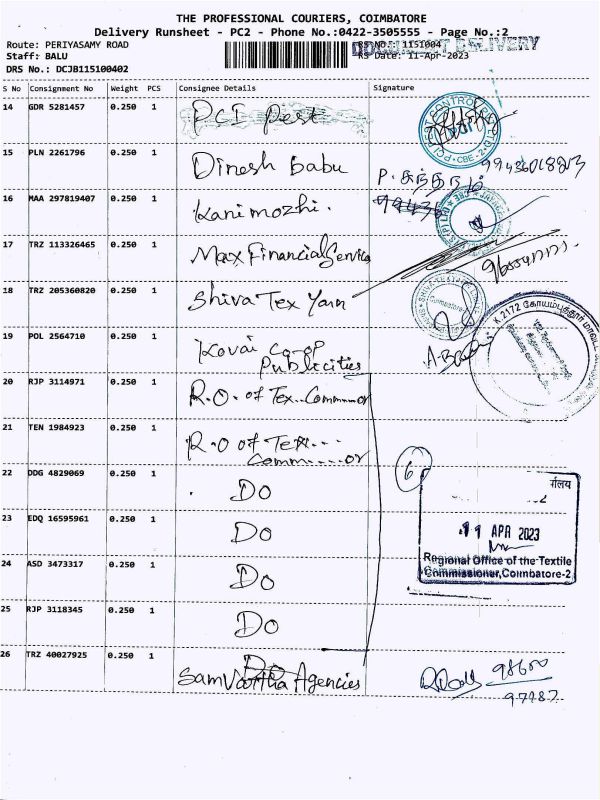 THE PROFESSIONAL COURIERS, COIMBATORE
Delivery Runsheet - PC2 - Phone No.:0422-3505555 - Page No.:2
Route: PERIYASAMY ROAD
RS NO.: 1151004
Staff: BALU
RS Date: 11-Apr-2023
DRS No.: DCJB115100402
S No Consignment No Weight PCS Consignee Details Signature
14 GDR 5281457 0.250 1 PCI Pest
15 PLN 2261796 0.250 1 Dinesh Babu
16 MAA 297819407 0.250 1 Kanimozhi.
17 TRZ 113326465 0.250 1 Max Financial Service
18 TRZ 205360820 0.250 1 Shiva Tex Yarn
19 POL 2564710 0.250 1 Kovai Co-op
Publicities
20 RJP 3114971 0.250 1 R.O. of Tex..Commmor
21 TEN 1984923 0.250 1 R.O of Tex...
Comm....or
22 DDG 4829069 0.250 1 Do
23 EDQ 16595961 0.250 1 Do
6
24 ASD 3473317 0.250 1 Do
11 APR 2023
Regional Office of the Textile
Commissioner, Coimbatore-2
25 RJP 3118345 0.250 1 Do
26 TRZ 40027925 0.250 1 Do
Samvartha Agencies
98600
97787